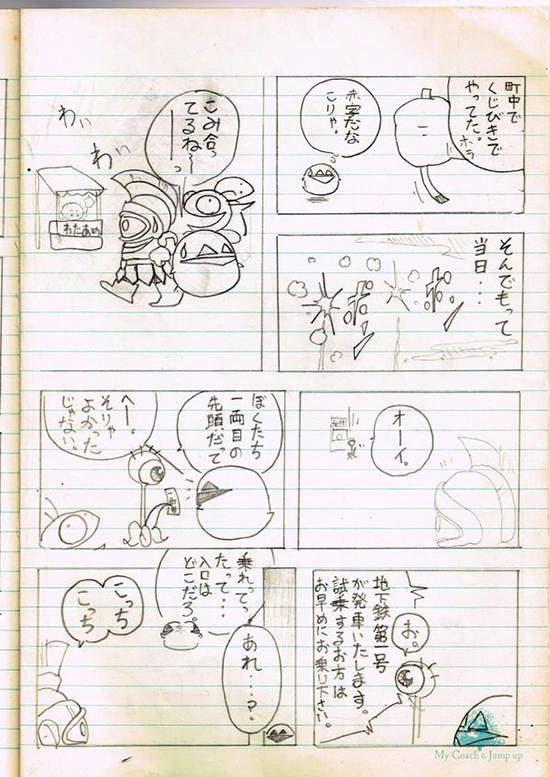 町中で
くじびきで
やってた。
ホラ
赤字だな
こりゃ。
そんでもって
当日・・・
ポン
ポン
こみ合っ
てるね〜っ
わい
わい
わたあめ
オーイ。
ぼくたち
一両目の
先頭だって
へー。
そりゃ
よかった
じゃない。
お。
地下鉄第一号
が発車いたします。
試乗するお方は
お早めにお乗り下さい。
乗れってっ
たって・・・
入口は
どこだろ。
あれ・・・？
こっち
こっち
My Coach & Jump up